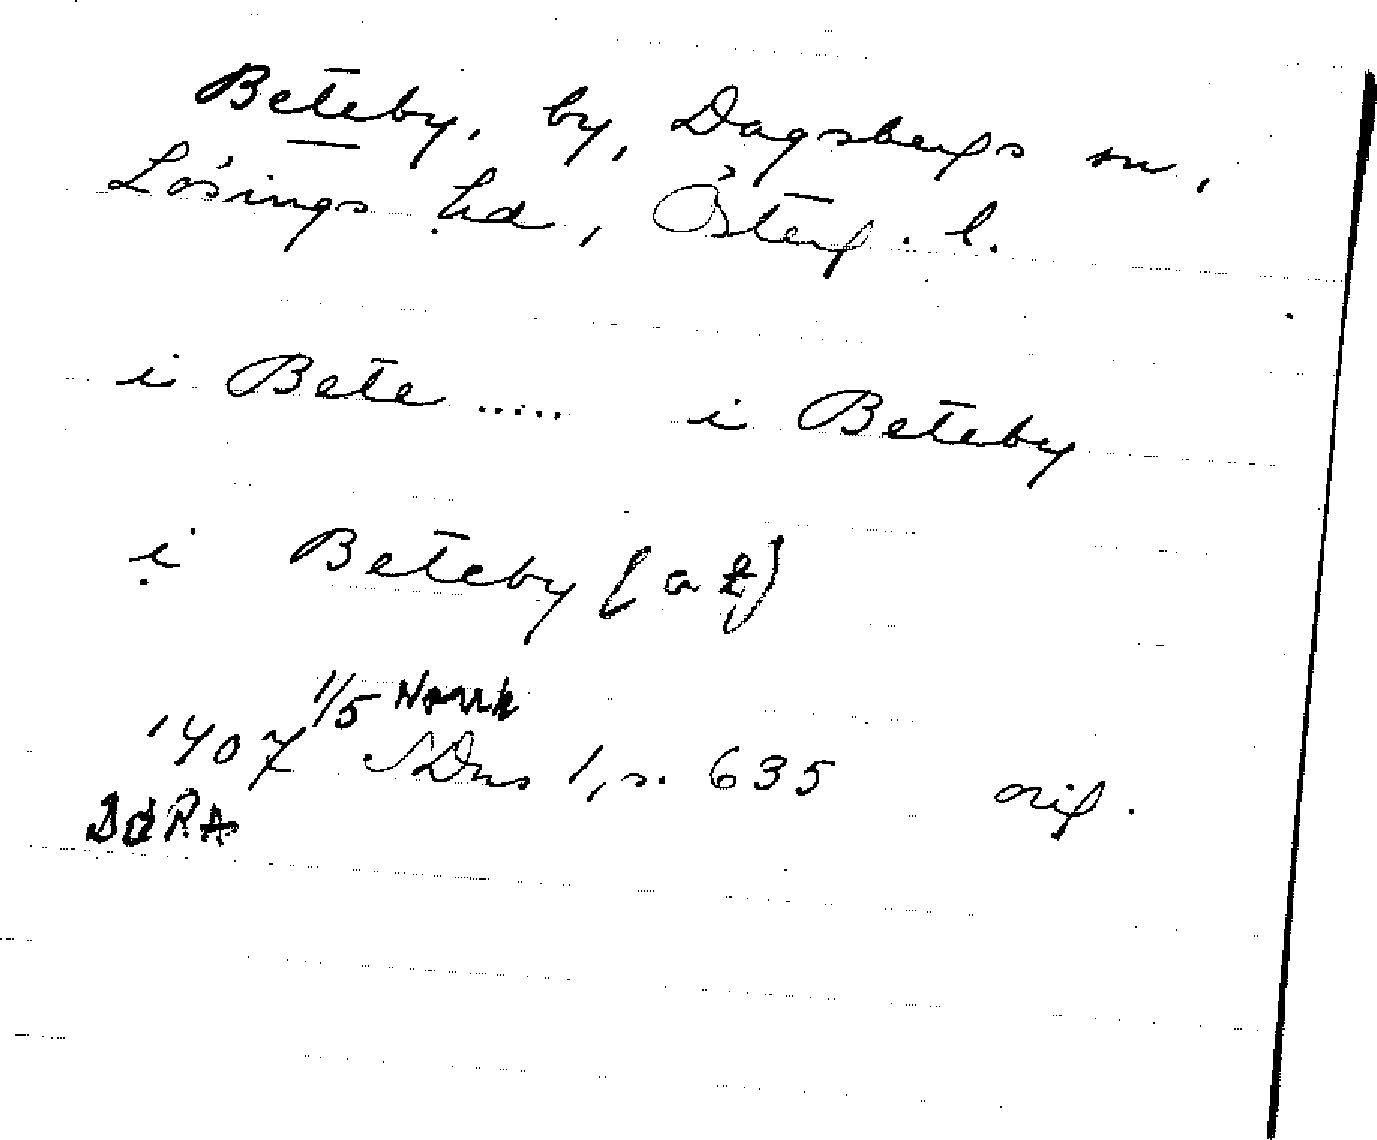 Beteby, by, Dagsbergs sn,
Lösings hd, Österg. l.
i Bete ..... i Beteby
i Beteby (a t)
1/5
1407 SDns 1, s. 635 orig.
DdRA